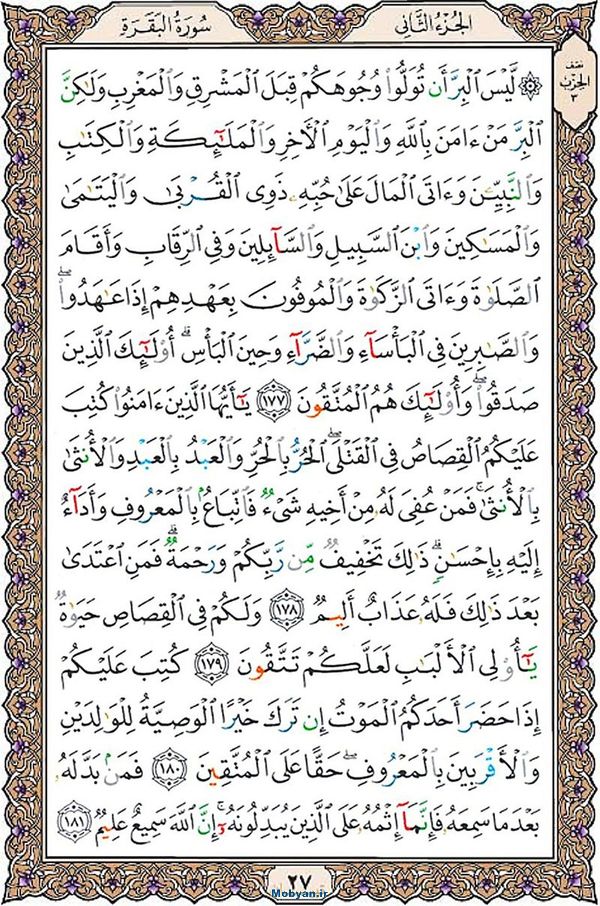 سُورَةُ البَقَرَةِ
الجُزءُ الثَّانِي
نصف
الحِزب
٣
۞ لَّيْسَ ٱلْبِرَّ أَن تُوَلُّوا۟ وُجُوهَكُمْ قِبَلَ ٱلْمَشْرِقِ وَٱلْمَغْرِبِ وَلَـٰكِنَّ
ٱلْبِرَّ مَنْ ءَامَنَ بِٱللَّهِ وَٱلْيَوْمِ ٱلْـَٔاخِرِ وَٱلْمَلَـٰٓئِكَةِ وَٱلْكِتَـٰبِ
وَٱلنَّبِيِّـۧنَ وَءَاتَى ٱلْمَالَ عَلَىٰ حُبِّهِۦ ذَوِى ٱلْقُرْبَىٰ وَٱلْيَتَـٰمَىٰ
وَٱلْمَسَـٰكِينَ وَٱبْنَ ٱلسَّبِيلِ وَٱلسَّآئِلِينَ وَفِى ٱلرِّقَابِ وَأَقَامَ
ٱلصَّلَوٰةَ وَءَاتَى ٱلزَّكَوٰةَ وَٱلْمُوفُونَ بِعَهْدِهِمْ إِذَا عَـٰهَدُوا۟ ۖ
وَٱلصَّـٰبِرِينَ فِى ٱلْبَأْسَآءِ وَٱلضَّرَّآءِ وَحِينَ ٱلْبَأْسِ ۗ أُو۟لَـٰٓئِكَ ٱلَّذِينَ
صَدَقُوا۟ ۖ وَأُو۟لَـٰٓئِكَ هُمُ ٱلْمُتَّقُونَ ١٧٧ يَـٰٓأَيُّهَا ٱلَّذِينَ ءَامَنُوا۟ كُتِبَ
عَلَيْكُمُ ٱلْقِصَاصُ فِى ٱلْقَتْلَى ۖ ٱلْحُرُّ بِٱلْحُرِّ وَٱلْعَبْدُ بِٱلْعَبْدِ وَٱلْأُنثَىٰ
بِٱلْأُنثَىٰ ۚ فَمَنْ عُفِىَ لَهُۥ مِنْ أَخِيهِ شَىْءٌ فَٱتِّبَاعٌۢ بِٱلْمَعْرُوفِ وَأَدَآءٌ
إِلَيْهِ بِإِحْسَـٰنٍ ۗ ذَٰلِكَ تَخْفِيفٌ مِّن رَّبِّكُمْ وَرَحْمَةٌ ۗ فَمَنِ ٱعْتَدَىٰ
بَعْدَ ذَٰلِكَ فَلَهُۥ عَذَابٌ أَلِيمٌ ١٧٨ وَلَكُمْ فِى ٱلْقِصَاصِ حَيَوٰةٌ
يَـٰٓأُو۟لِى ٱلْأَلْبَـٰبِ لَعَلَّكُمْ تَتَّقُونَ ١٧٩ كُتِبَ عَلَيْكُمْ
إِذَا حَضَرَ أَحَدَكُمُ ٱلْمَوْتُ إِن تَرَكَ خَيْرًا ٱلْوَصِيَّةُ لِلْوَٰلِدَيْنِ
وَٱلْأَقْرَبِينَ بِٱلْمَعْرُوفِ ۖ حَقًّا عَلَى ٱلْمُتَّقِينَ ١٨٠ فَمَنۢ بَدَّلَهُۥ
بَعْدَ مَا سَمِعَهُۥ فَإِنَّمَآ إِثْمُهُۥ عَلَى ٱلَّذِينَ يُبَدِّلُونَهُۥٓ ۚ إِنَّ ٱللَّهَ سَمِيعٌ عَلِيمٌ ١٨١
٢٧
Mobyan.ir